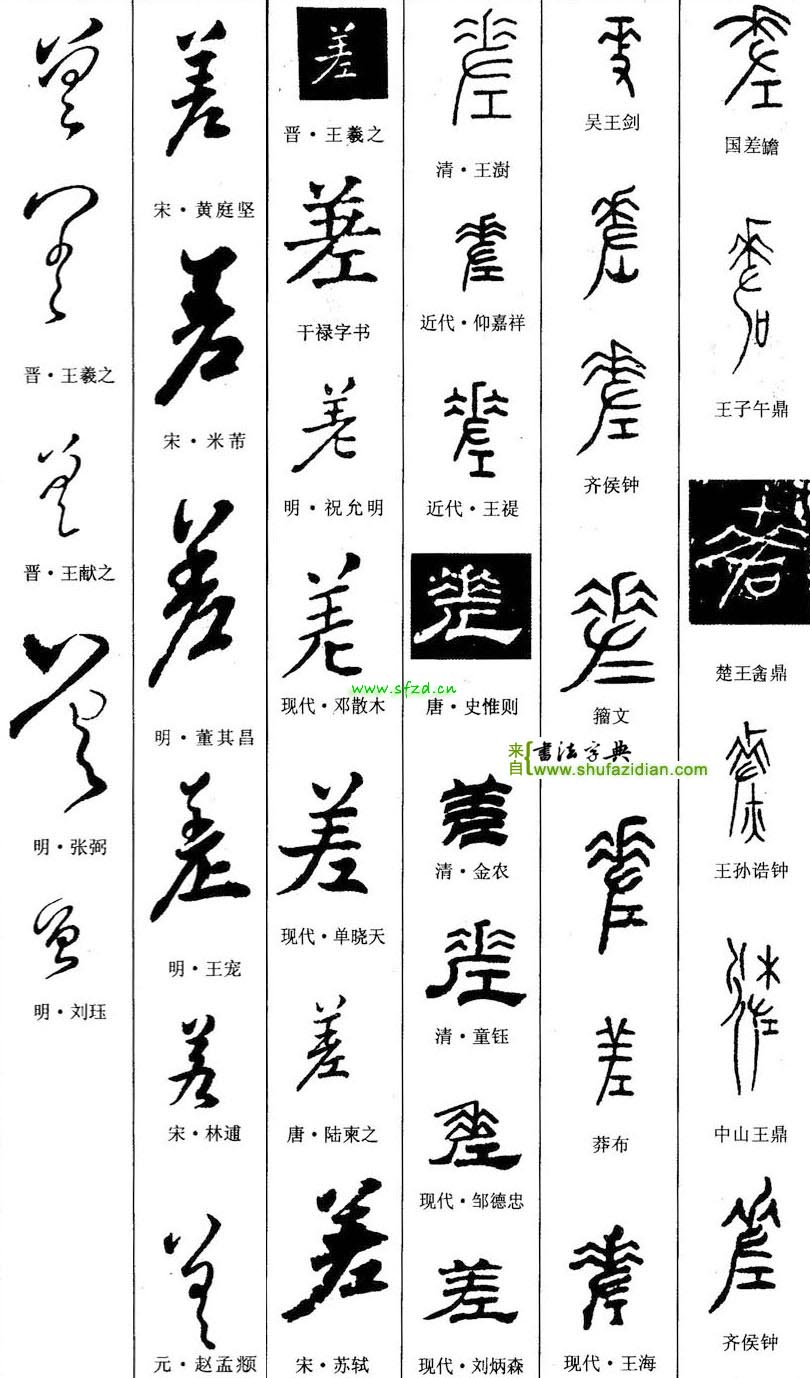 差
国差𦉜
差
王子午鼎
差
楚王酓鼎
差
王孙诰钟
差
中山王鼎
差
齐侯钟
差
吴王剑
差
差
齐侯钟
差
籀文
差
差
莽布
差
现代·王海
差
清·王澍
差
近代·仰嘉祥
差
近代·王禔
差
唐·史惟则
差
清·金农
差
清·童钰
差
现代·邹德忠
差
现代·刘炳森
差
晋·王羲之
差
干禄字书
差
明·祝允明
差
现代·邓散木
差
现代·单晓天
差
唐·陆柬之
差
宋·苏轼
差
宋·黄庭坚
差
宋·米芾
差
明·董其昌
差
明·王宠
差
宋·林逋
差
元·赵孟頫
差
差
晋·王羲之
差
晋·王献之
差
明·张弼
差
明·刘珏
www.sfzd.cn
来自
书法字典
www.shufazidian.com